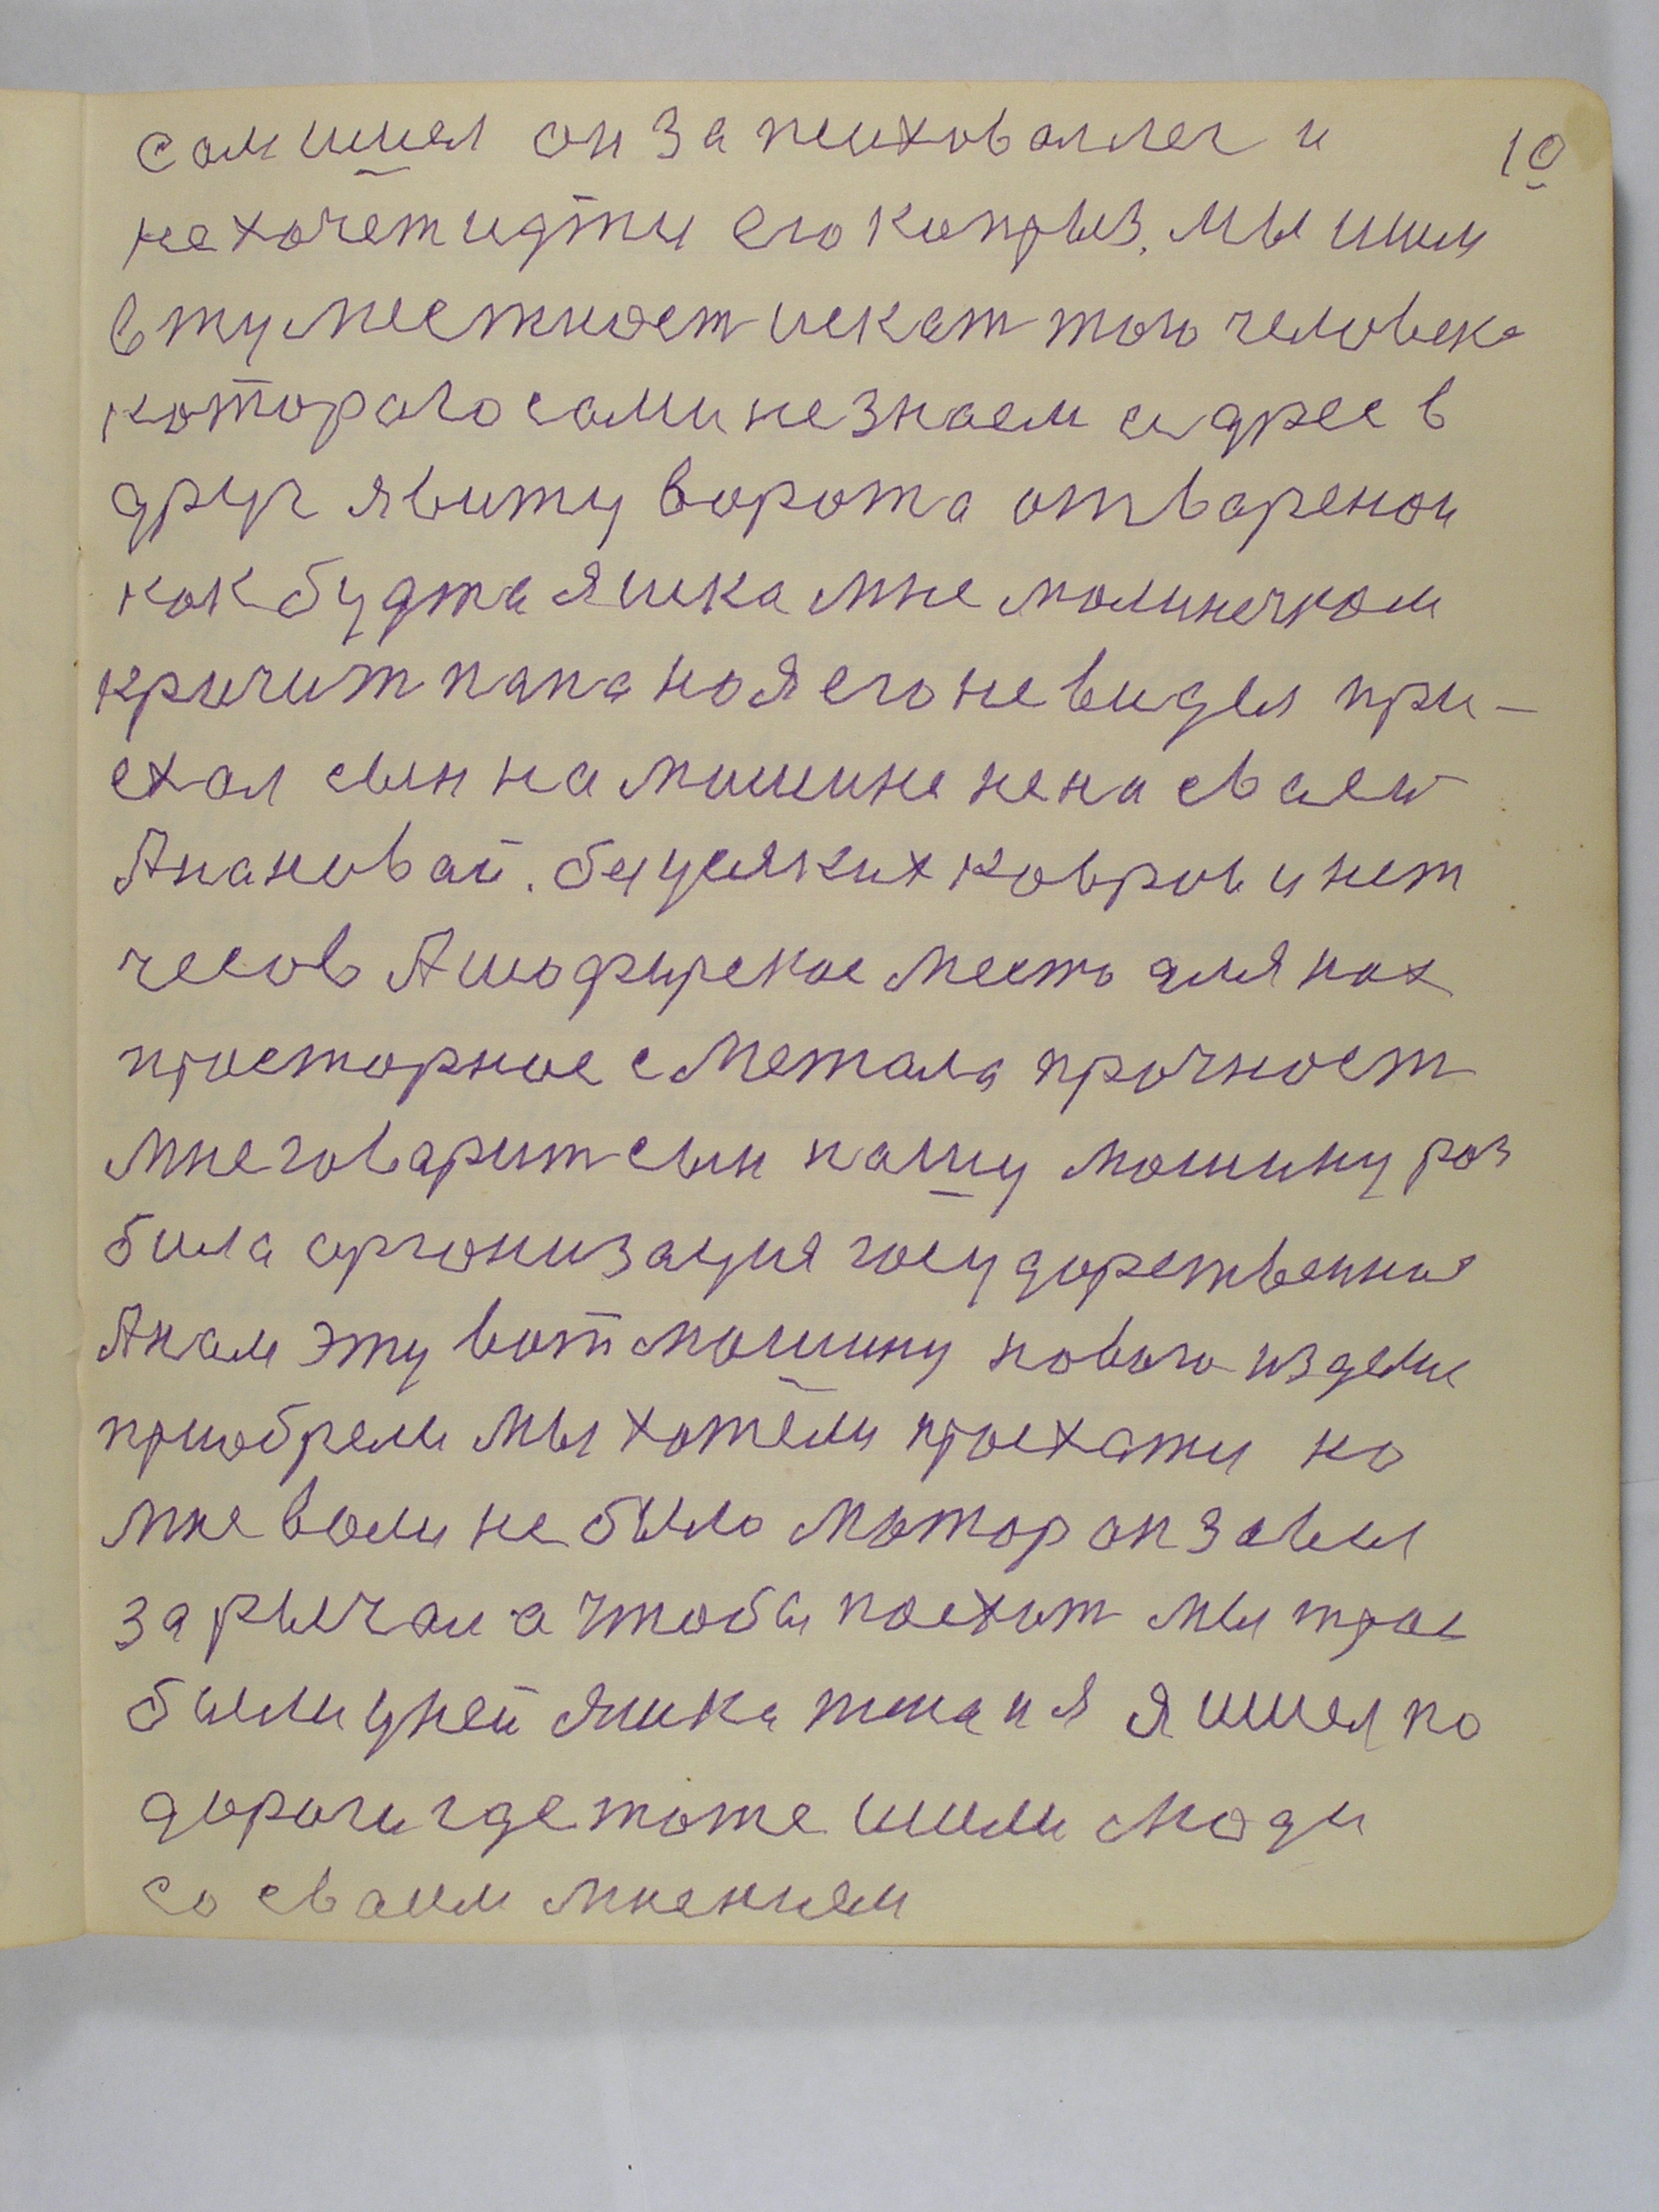 сам ишел он запсиховаллег и 10
не хочет идти его каприз. мы шли
в ту местност искат того человека
которого сами незнаем адрес в
друг явижу ворота отвареной
как будта Яшка мне молинечком
кричит папа но Я его не видел при-
ехал сын на машине не на сваей
Ановай. без усяких ковров и нет
чесов Ашофирское место для нах
просторное с Метала прочност
мне говарит сын нашу машину раз
била организация государственная
Анам эту вот машину нового изделие
приобрели мы хотели проехати но
мне воли не было мотор он завел
зарычал а чтобы поехат мы трое
были у ней Яшка жена и я Я ишел по
дороги где тоже шли люди
со сваим мнением